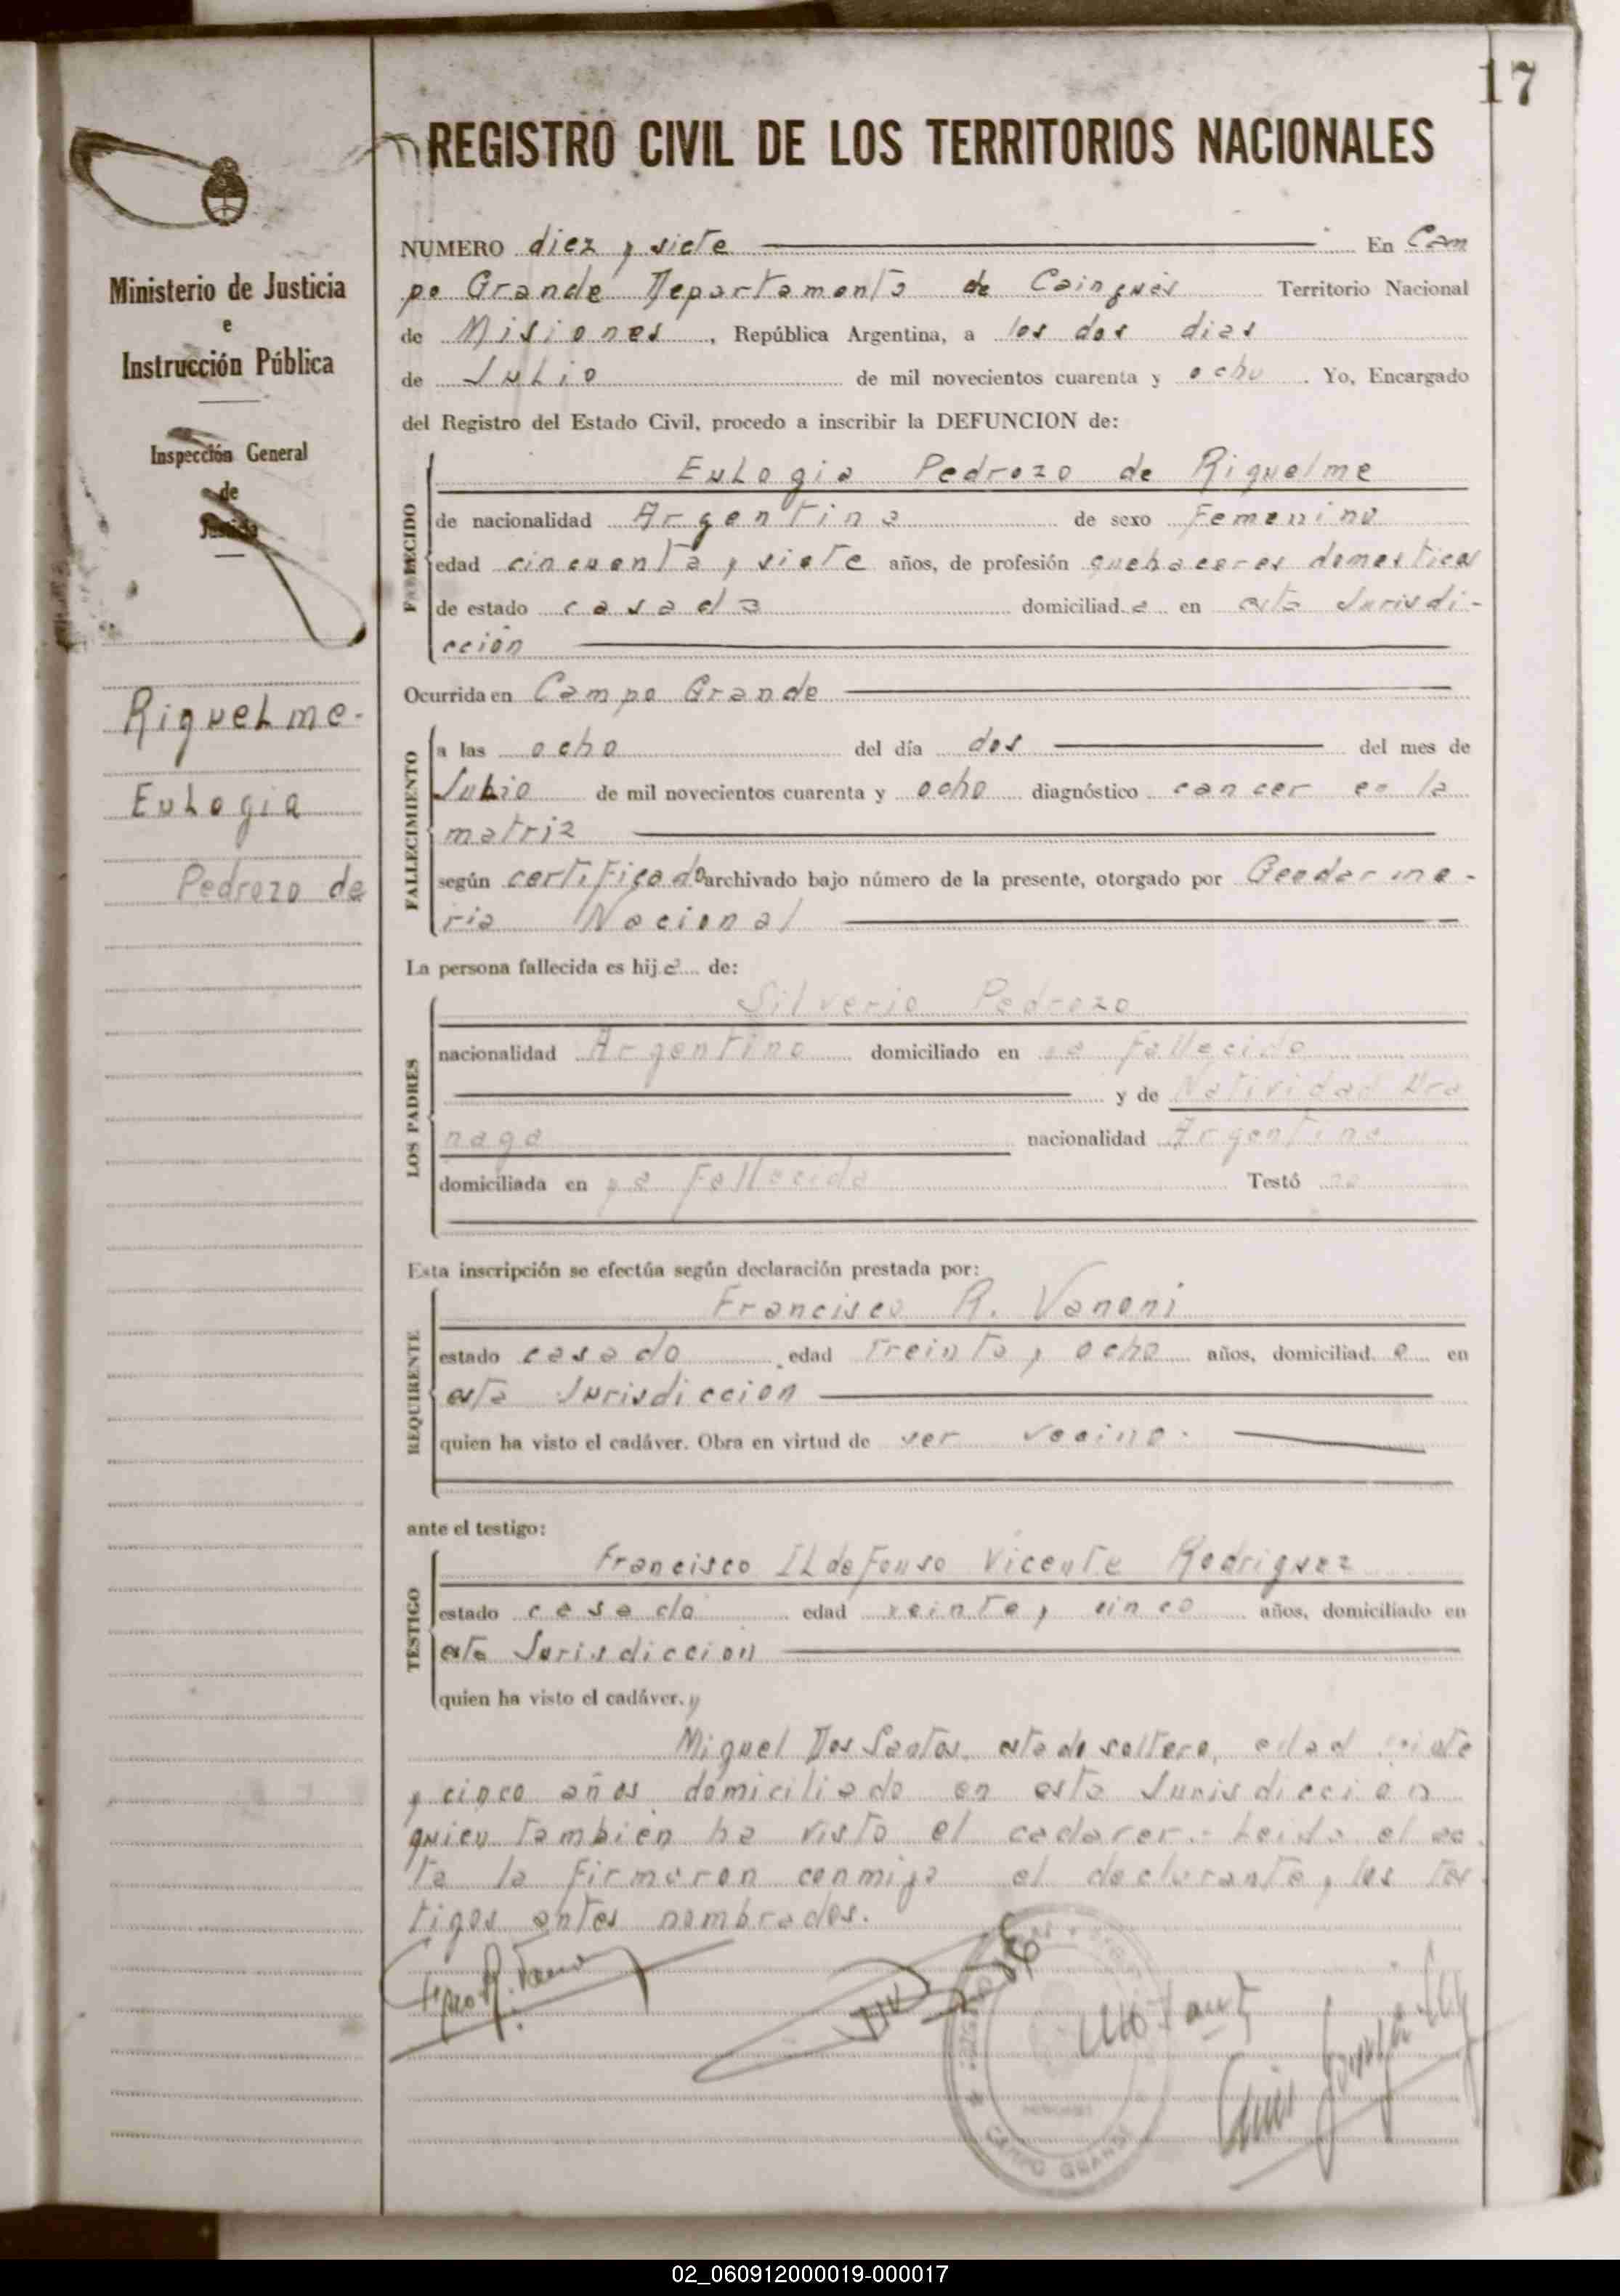 17
REGISTRO CIVIL DE LOS TERRITORIOS NACIONALES
Ministerio de Justicia
e
Instrucción Pública
Inspección General
de
Justicia
Riquelme.
Eulogia
Pedrozo de
NUMERO diez y siete En Cam
po Grande Departamento de Cainguás Territorio Nacional
de Misiones, República Argentina, a los dos dias
de Julio de mil novecientos cuarenta y ocho. Yo, Encargado
del Registro del Estado Civil, procedo a inscribir la DEFUNCION de:
FALLECIDO
Eulogia Pedrozo de Riquelme
de nacionalidad Argentina de sexo Femenino
edad cincuenta y siete años, de profesión quehaceres domesticos
de estado casada domiciliad a en esta Jurisdi-
cción
Ocurrida en Campo Grande
FALLECIMIENTO
a las ocho del día dos del mes de
Julio de mil novecientos cuarenta y ocho diagnóstico cancer en la
matriz
según certificado archivado bajo número de la presente, otorgado por Gendarme-
ria Nacional
La persona fallecida es hij a de:
LOS PADRES
Silverio Pedrozo
nacionalidad Argentino domiciliado en ya fallecido
y de Natividad
naga nacionalidad Argentina
domiciliada en ya fallecida Testó no
Esta inscripción se efectúa según declaración prestada por:
REQUIRENTE
Francisco R. Vanoni
estado casado edad treinta y ocho años, domiciliad o en
esta Jurisdiccion
quien ha visto el cadáver. Obra en virtud de ser vecino.
ante el testigo:
TESTIGO
Francisco Ildefonso Vicente Rodriguez
estado casado edad veinte y cinco años, domiciliado en
esta Jurisdiccion
quien ha visto el cadáver. y
Miguel Dos Santos, estado soltero, edad veinte
y cinco años domiciliado en esta Jurisdicción
quien tambien ha visto el cadaver.- Leida el ac
ta la firmaron conmigo el declarante y los tes
tigos antes nombrados.
CAMPO GRANDE
02_060912000019-000017